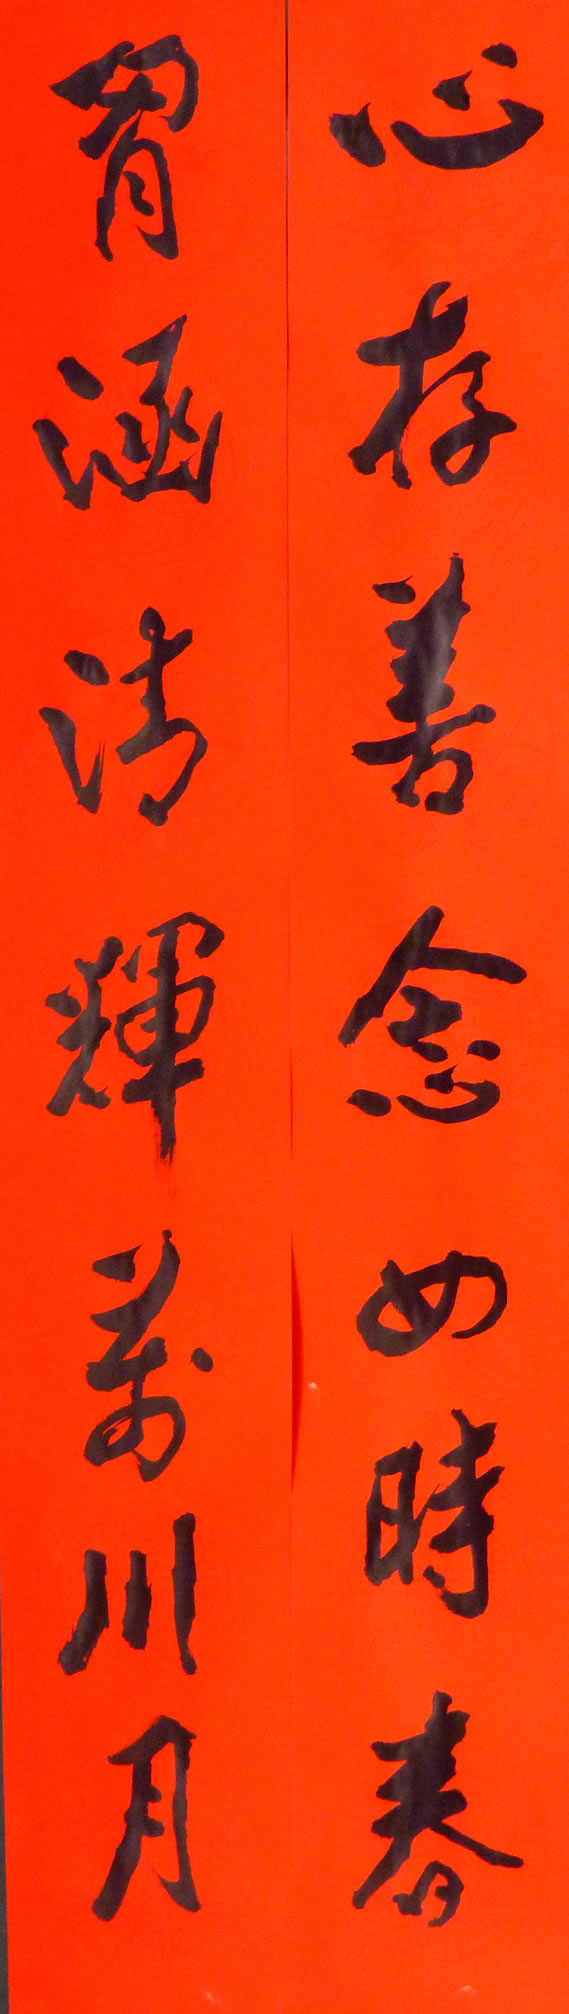 心存善念如時春
胷涵清輝萬川月